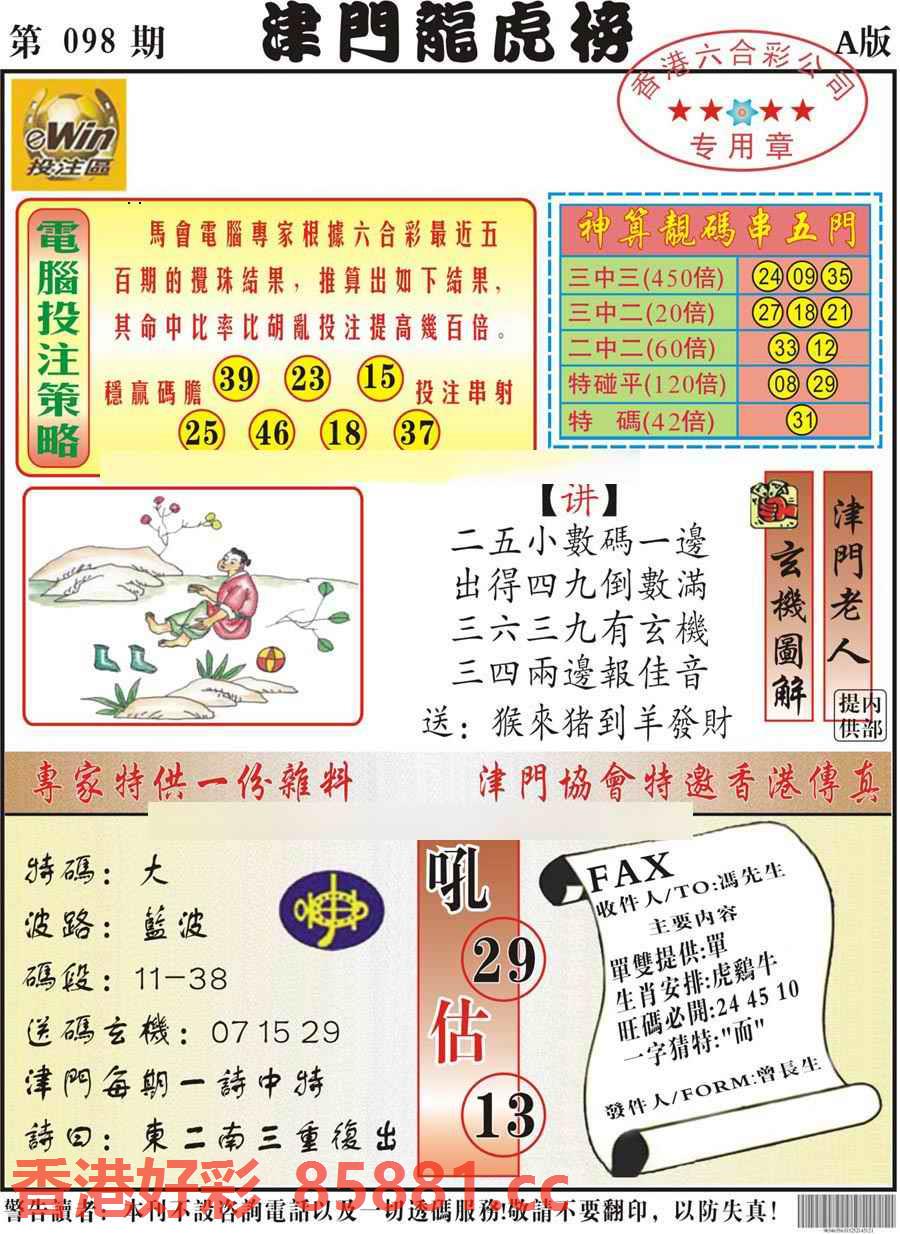 第 098 期
津門龍虎榜
A版
香港六合彩公司
专用章
eWin
投注區
電腦投注策略
馬會電腦專家根據六合彩最近五
百期的攪珠結果，推算出如下結果，
其命中比率比胡亂投注提高幾百倍。
穩贏碼膽 39 23 15 投注串射
25 46 18 37
神算靚碼串五門
三中三(450倍) 24 09 35
三中二(20倍) 27 18 21
二中二(60倍) 33 12
特碰平(120倍) 08 29
特 碼(42倍) 31
【讲】
二五小數碼一邊
出得四九倒數滿
三六三九有玄機
三四兩邊報佳音
送：猴來猪到羊發財
玄機圖解
津門老人
内部提供
專家特供一份雜料
津門協會特邀香港傳真
特碼：大
波路：藍波
碼段：11-38
送碼玄機：07 15 29
津門每期一詩中特
詩曰：東二南三重復出
吼
29
估
13
FAX
收件人/TO:馮先生
主要内容
單雙提供:單
生肖安排:虎鷄牛
旺碼必開:24 45 10
一字猜特:"而"
發件人/FORM:曾長生
香港好彩 85881.cc
警告讀者：本刊不設咨詢電話以及一切透碼服務!敬請不要翻印，以防失真!